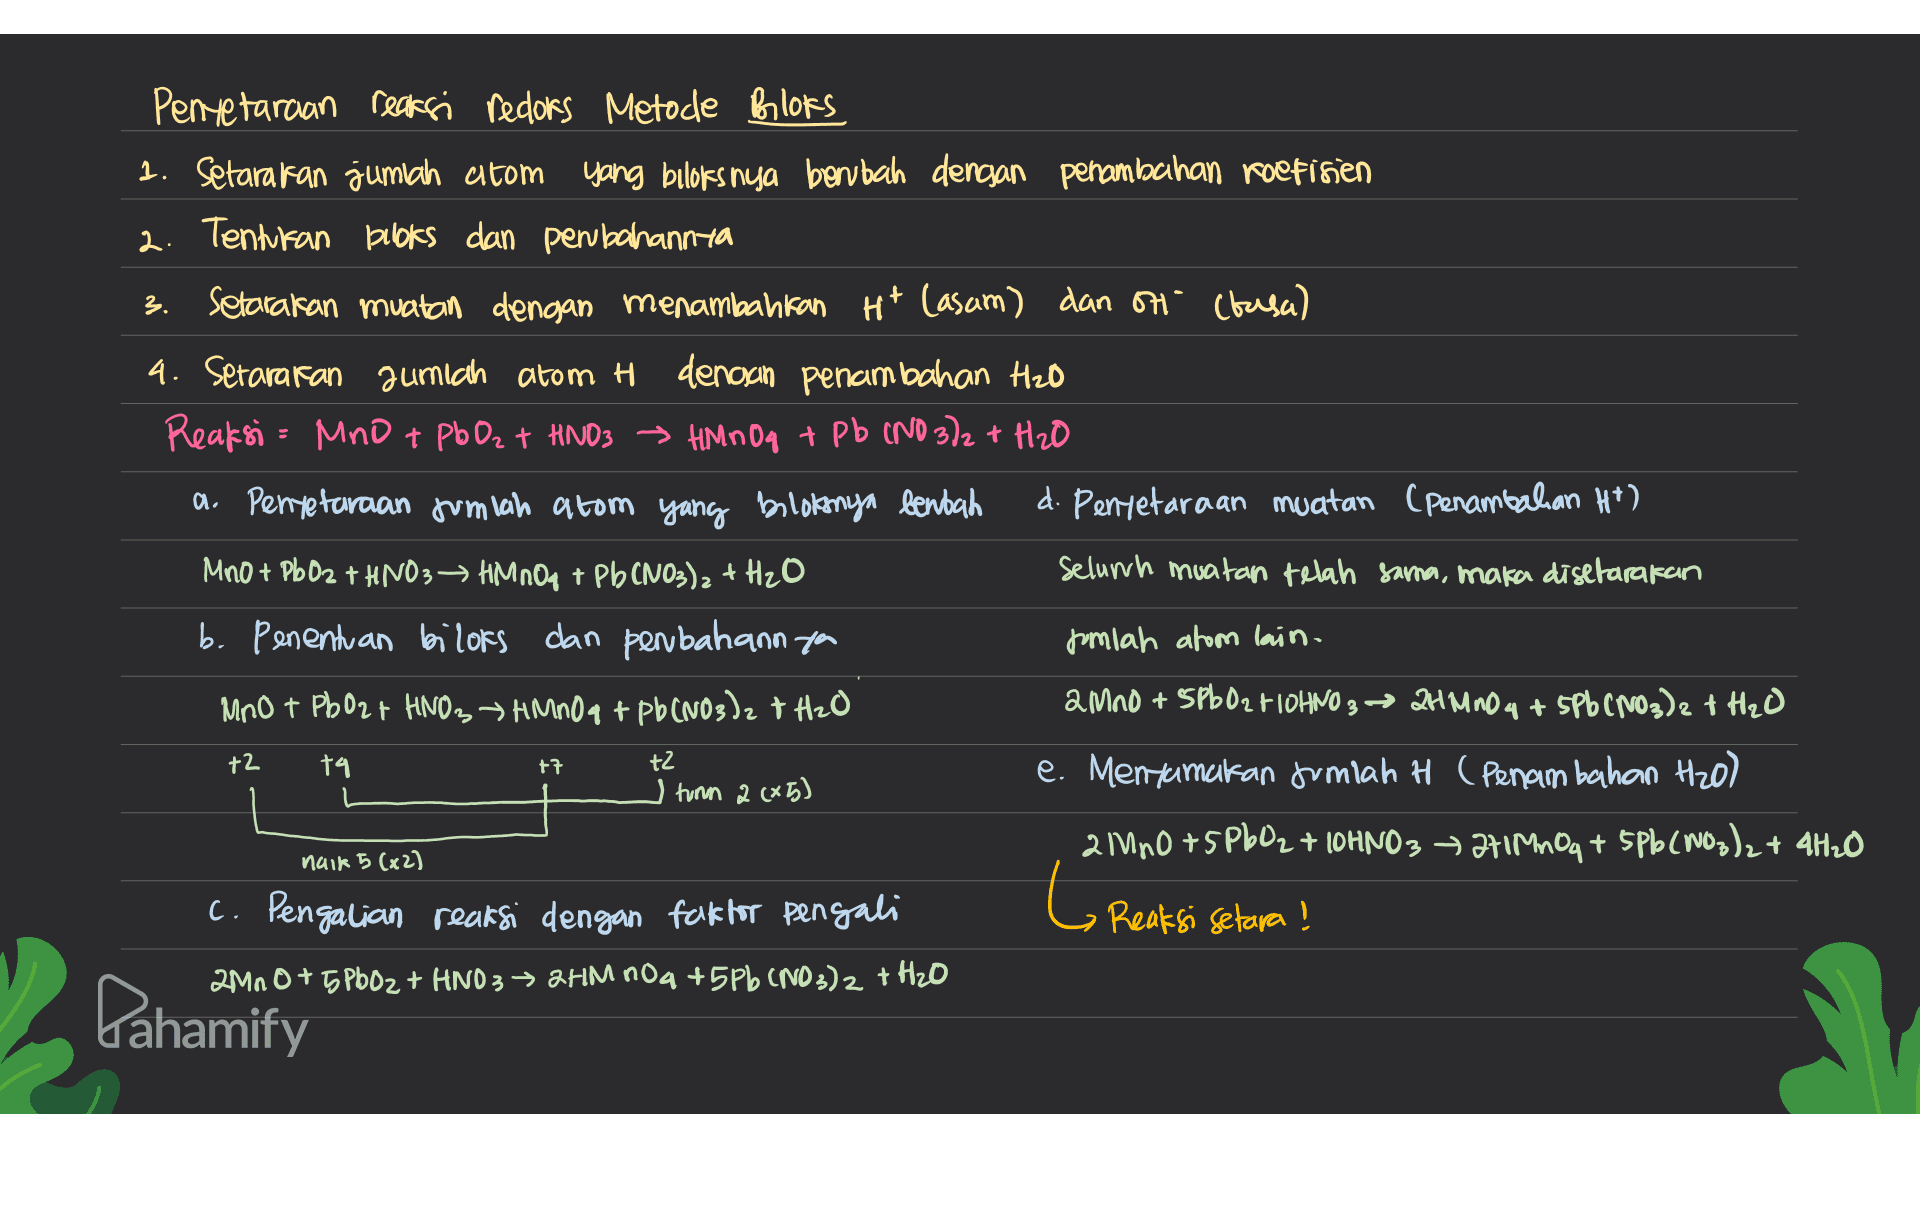 Penyetaraan reaksi redoks Metode Biloks
1. Setarakan jumlah atom yang biloksnya berubah dengan penambahan koefisien
2. Tentukan biloks dan perubahannya
3. Setarakan muatan dengan menambahkan H⁺ (asam) dan OH⁻ (basa)
4. Setarakan jumlah atom H dengan penambahan H₂O
Reaksi = MnO + PbO₂ + HNO₃ → HMnO₄ + Pb(NO₃)₂ + H₂O
a. Penyetaraan jumlah atom yang biloksnya berubah
MnO + PbO₂ + HNO₃ → HMnO₄ + Pb(NO₃)₂ + H₂O
b. Penentuan biloks dan perubahannya
MnO + PbO₂ + HNO₃ → HMnO₄ + Pb(NO₃)₂ + H₂O
+2 +4 +7 +2
turun 2 (x5)
naik 5 (x2)
c. Pengalian reaksi dengan faktor pengali
2MnO + 5PbO₂ + HNO₃ → 2HMnO₄ + 5Pb(NO₃)₂ + H₂O
d. Penyetaraan muatan (penambahan H⁺)
Seluruh muatan telah sama, maka disetarakan
jumlah atom lain.
2MnO + 5PbO₂ + 10HNO₃ → 2HMnO₄ + 5Pb(NO₃)₂ + H₂O
e. Menyamakan jumlah H (Penambahan H₂O)
2MnO + 5PbO₂ + 10HNO₃ → 2HMnO₄ + 5Pb(NO₃)₂ + 4H₂O
Reaksi setara!
Pahamify